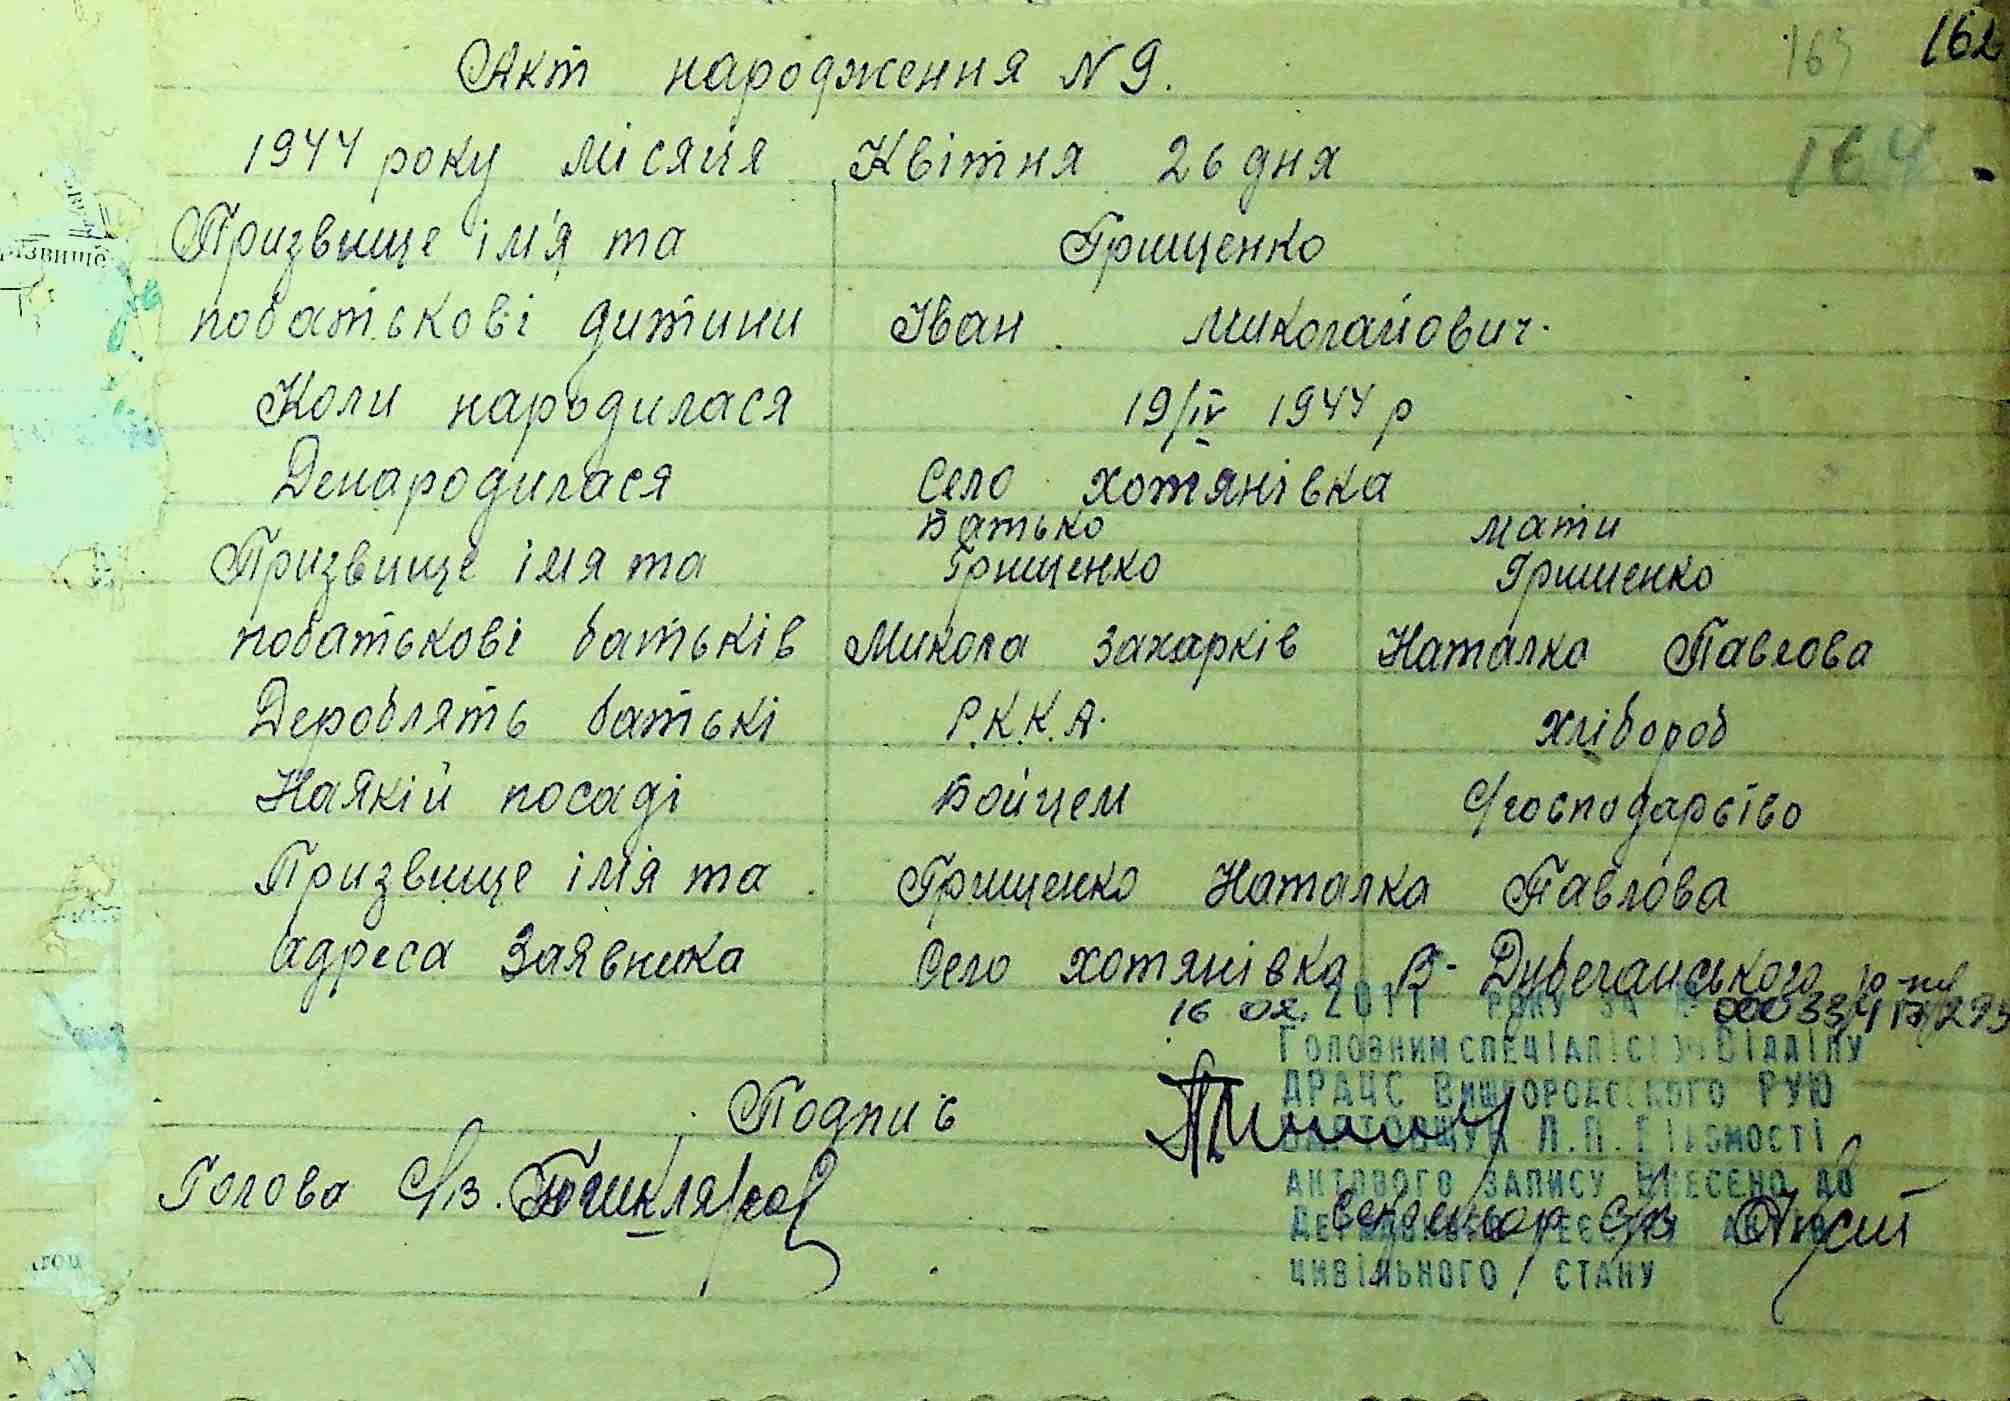 162
163
164
Акт народження N 9.
1944 року місяця Квітня 26 дня
Призвище ім'я та Грищенко
побатькові дитини Іван Миколайович.
Коли народилася 19/IV 1944 р
Денародилася Село Хотянівка
Батько мати
Призвище імя та Грищенко Грищенко
побатькові батьків Микола Захарків Наталка Павлова
Дероблять батькі Р.К.К.А. хлібороб
Наякій посаді Бойцем С/господарство
Призвище ім'я та Грищенко Наталка Павлова
адреса Заявника Село Хотянівка В-Дубечанського р-ну
16 02. 2011 року за
Головним спеціалістом Відділу
ДРАЦС Вишгородського РУЮ
Л.П. Відомості
Подпись
актового запису внесено до
Голова С/в.
Державного реєстру актів
Секретар С/в
цивільного стану
ізвище